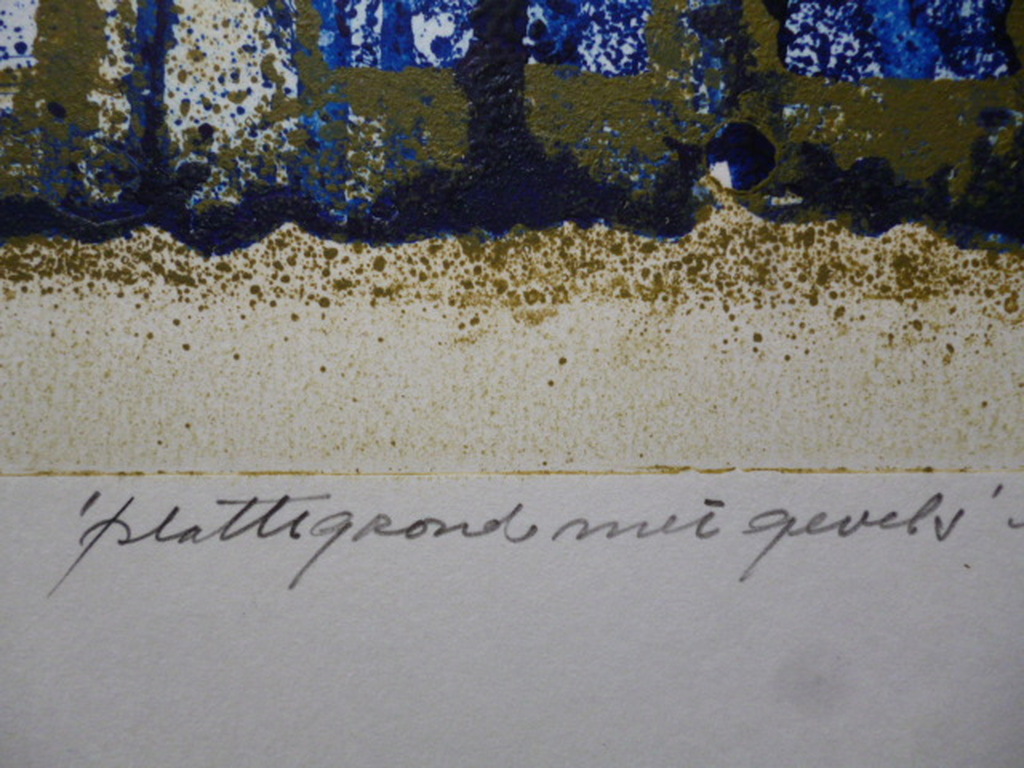 'plattegrond met gevels'